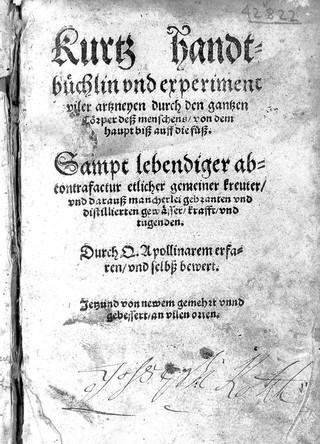 42822
Kurtz handt-
büchlin vnd experiment
viler artzneyen durch den gantzen
Cörper deß menschens/ von dem
haupt biß auff die füß.
Sampt lebendiger ab-
contrafactur etlicher gemeiner kreuter/
vnd darauß mancherlei gebranten vnd
distillierten gewässer/ krafft/ vnd
tugenden.
Durch Q. Apollinarem erfa-
ren/ vnd selbß bewert.
Jetzund von newem gemehrt vnnd
gebessert/ an vilen orten.